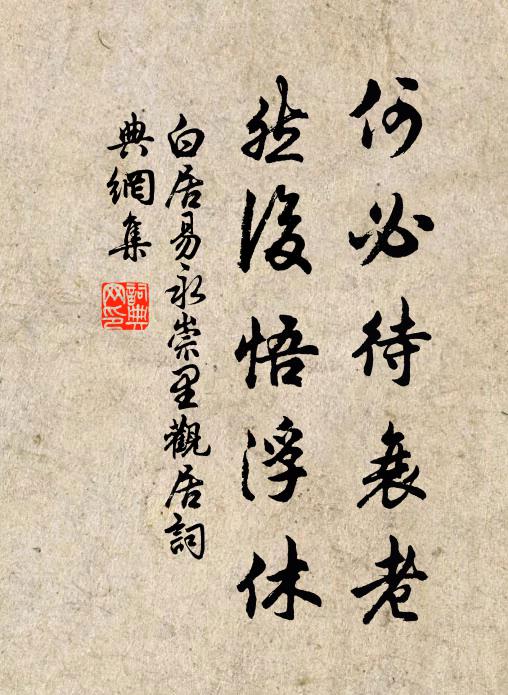 何必待衰老
然後悟浮休
白居易永崇里觀居詞
典網集
詞典
网印